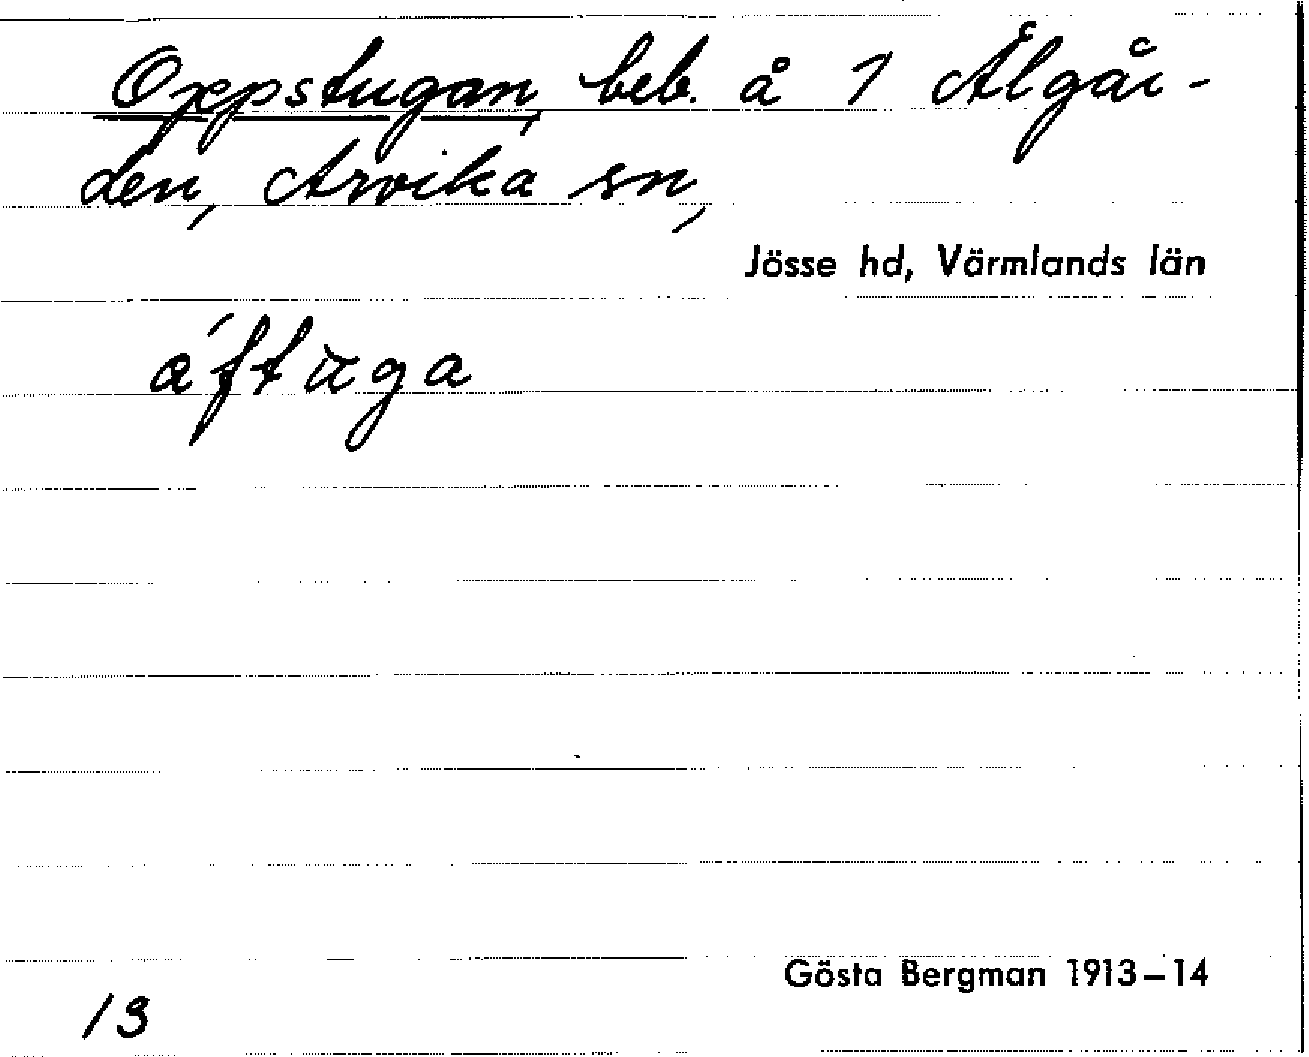 Oppstugan, beb. å 1 Ålgår-
den, Arvika sn,
Jösse hd, Värmlands län
Gösta Bergman 1913-14
13